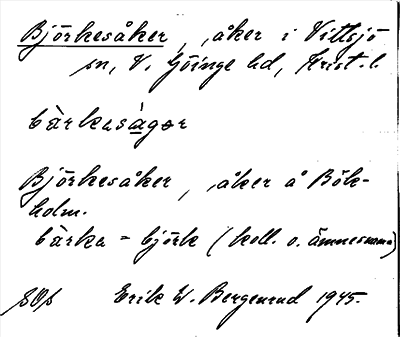 Björkesåker, åker i Vittsjö
sn, V. Göinge hd, Krist. l.
bàrkasågər
Björkesåker, åker å Bök-
holm.
bàrka = björk (koll. o. ämnesnamn)
Erik W. Bergenrud 1945.